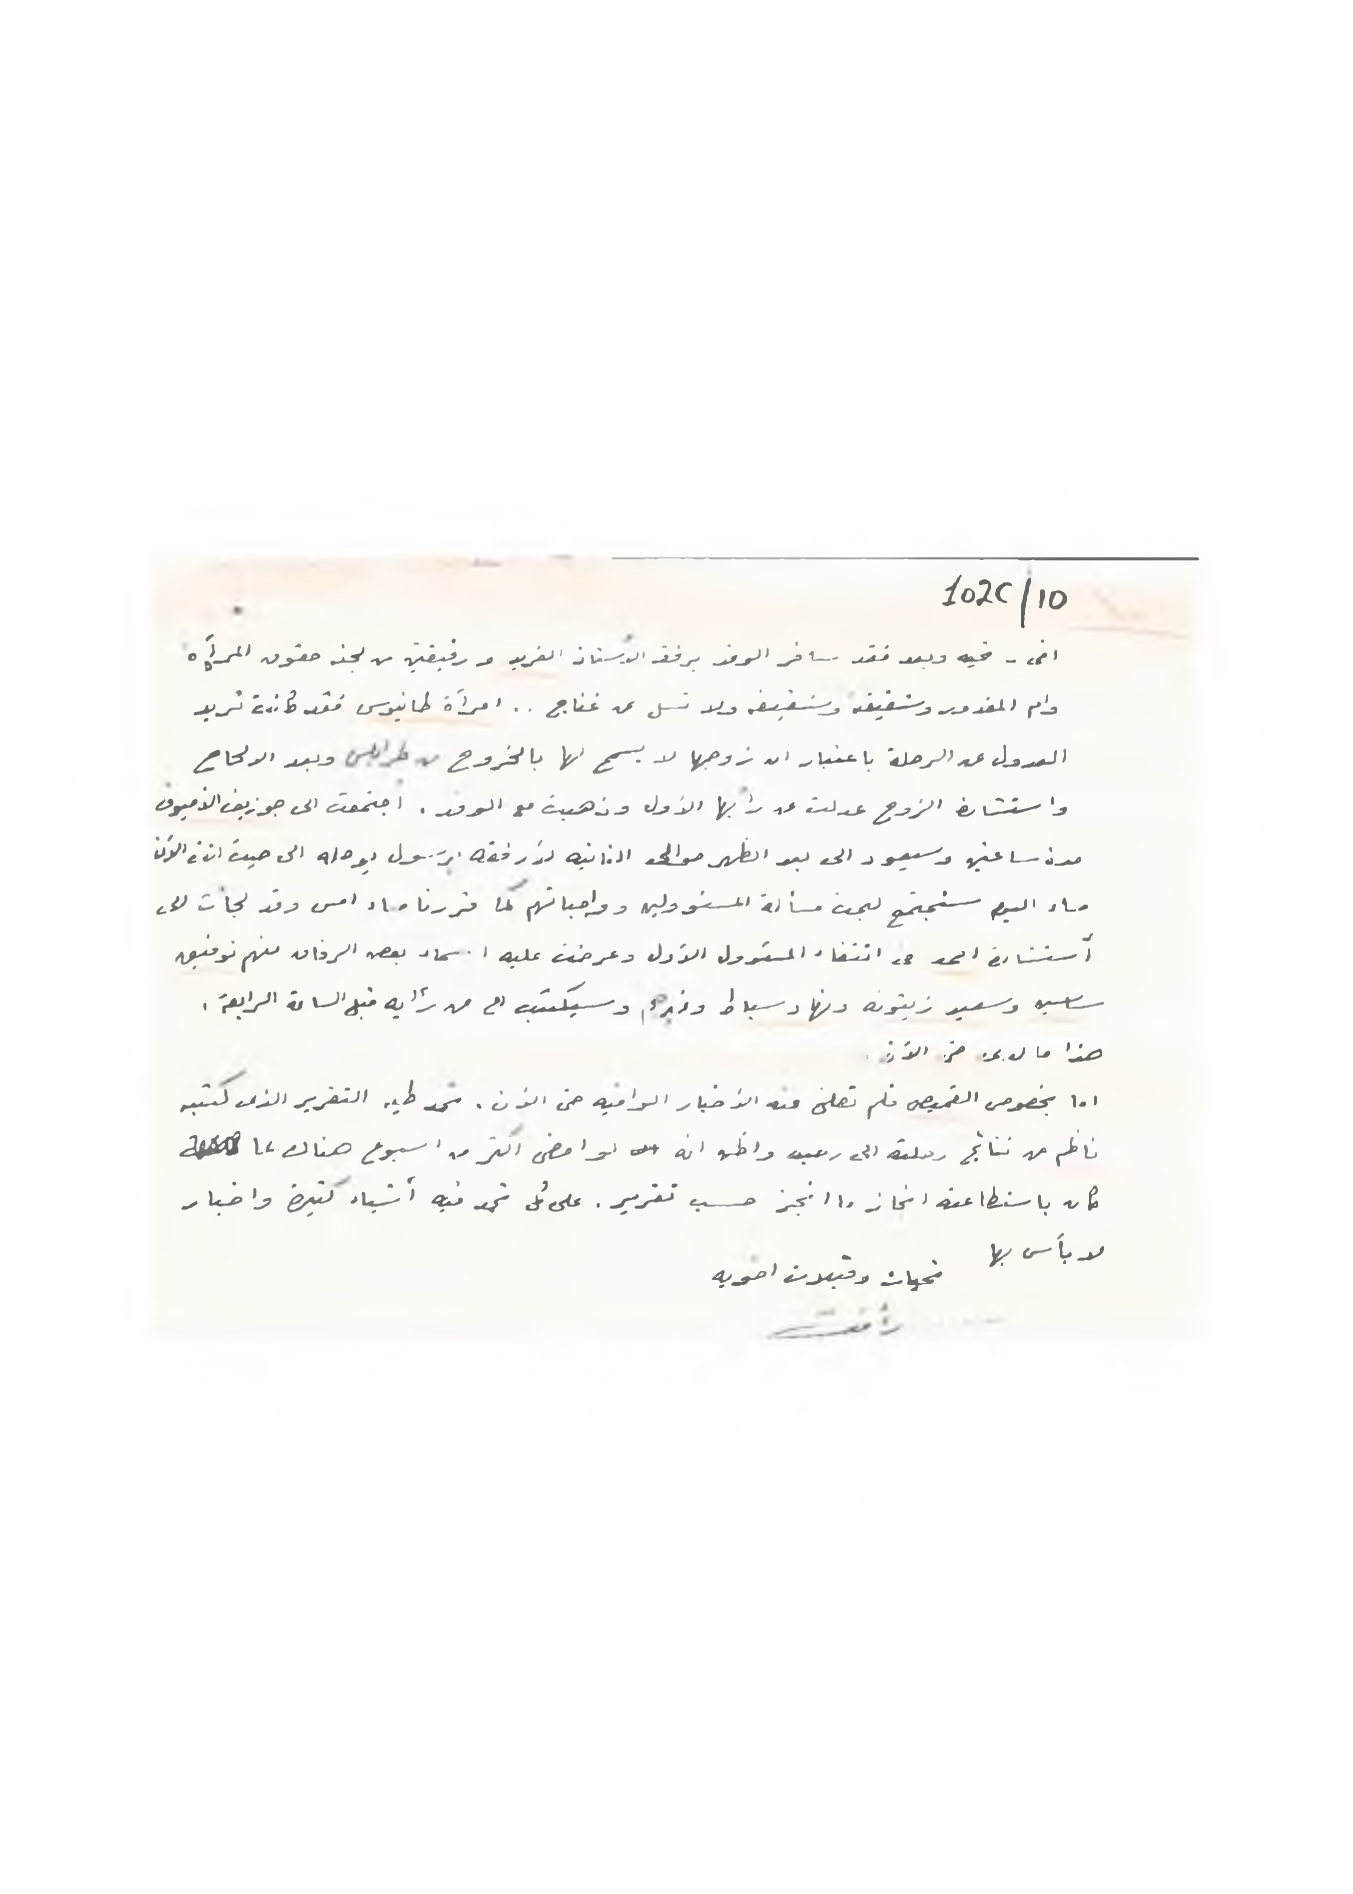 102C/10
اخي - تحيه وبعد فقد سافر الوفد برفقة الأستاذ الفريد ورفيقتين من لجنة حقوق المرأة
وام المغدور وشقيقه وشقيقة ولا تسل عن غناج .. امرأة طانيوس فقد كانت تريد
العدول عن الرحلة باعتبار ان زوجها لا يسمح لها بالخروج من طرابلس وبعد الالحاح
واستشارة الزوج عدلت عن رأيها الأول وذهبت مع الوفد . اجتمعت الى جوزيف
مدة ساعتين وسيعود الى بعد الظهر حوالي الثانيه لأرفقه برسول يوصله الى حيث انت الآن
مساء اليوم سنجتمع لبحث مسألة المسئوولين وواجباتهم كما قررنا مساء امس وقد لجأت الى
أستشارة احمد في انتقاء المسئوول الأول وعرضت عليه اسماء بعض الرفاق منهم توفيق
وسعيد زيتونه ونهاد سباط وغيرهم وسيكتب لي عن رأيه قبل الساعة الرابعة .
هذا ما لدي حتى الآن .
اما بخصوص القميص فلم تصلني منه الأخبار الوافيه حتى الآن . تجد طيه التقرير الذي كتبه
ناظم عن نتائج رحلته الى واظن انه لو امضى اكثر من اسبوع هناك لما
كان باستطاعته انجاز ما انجز حسب تقرير . على كل تجد فيه أشياء كثيرة واخبار
لا بأس بها
تحيات وقبلات اخويه
رأفت